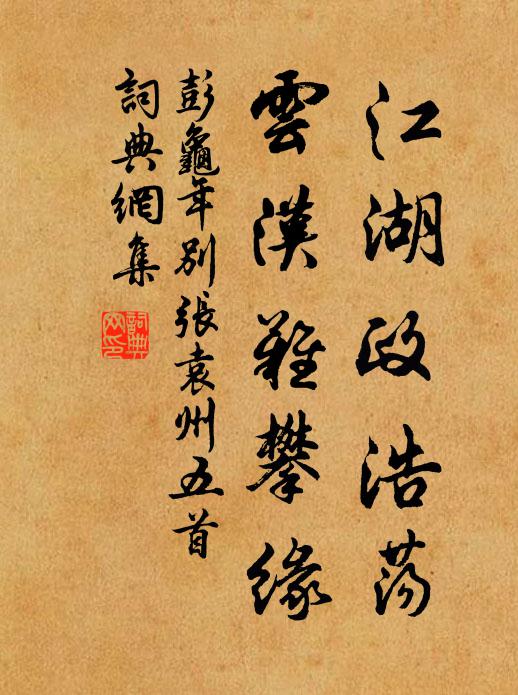 江湖政浩蕩
雲漢難攀緣
彭龜年別張袁州五首
詞典網集
詞典网印